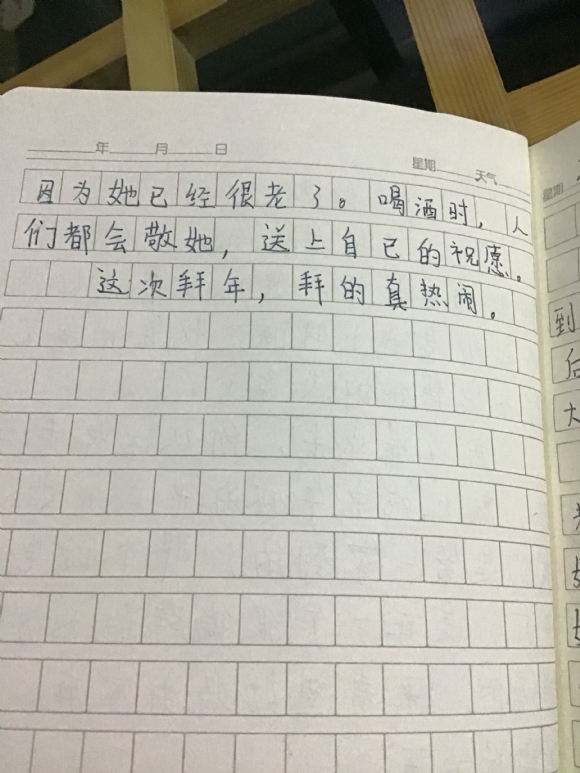 年 月 日 星期 天气
因为她已经很老了。喝酒时，人
们都会敬她，送上自己的祝愿。
这次拜年，拜的真热闹。
星期
到
后
大